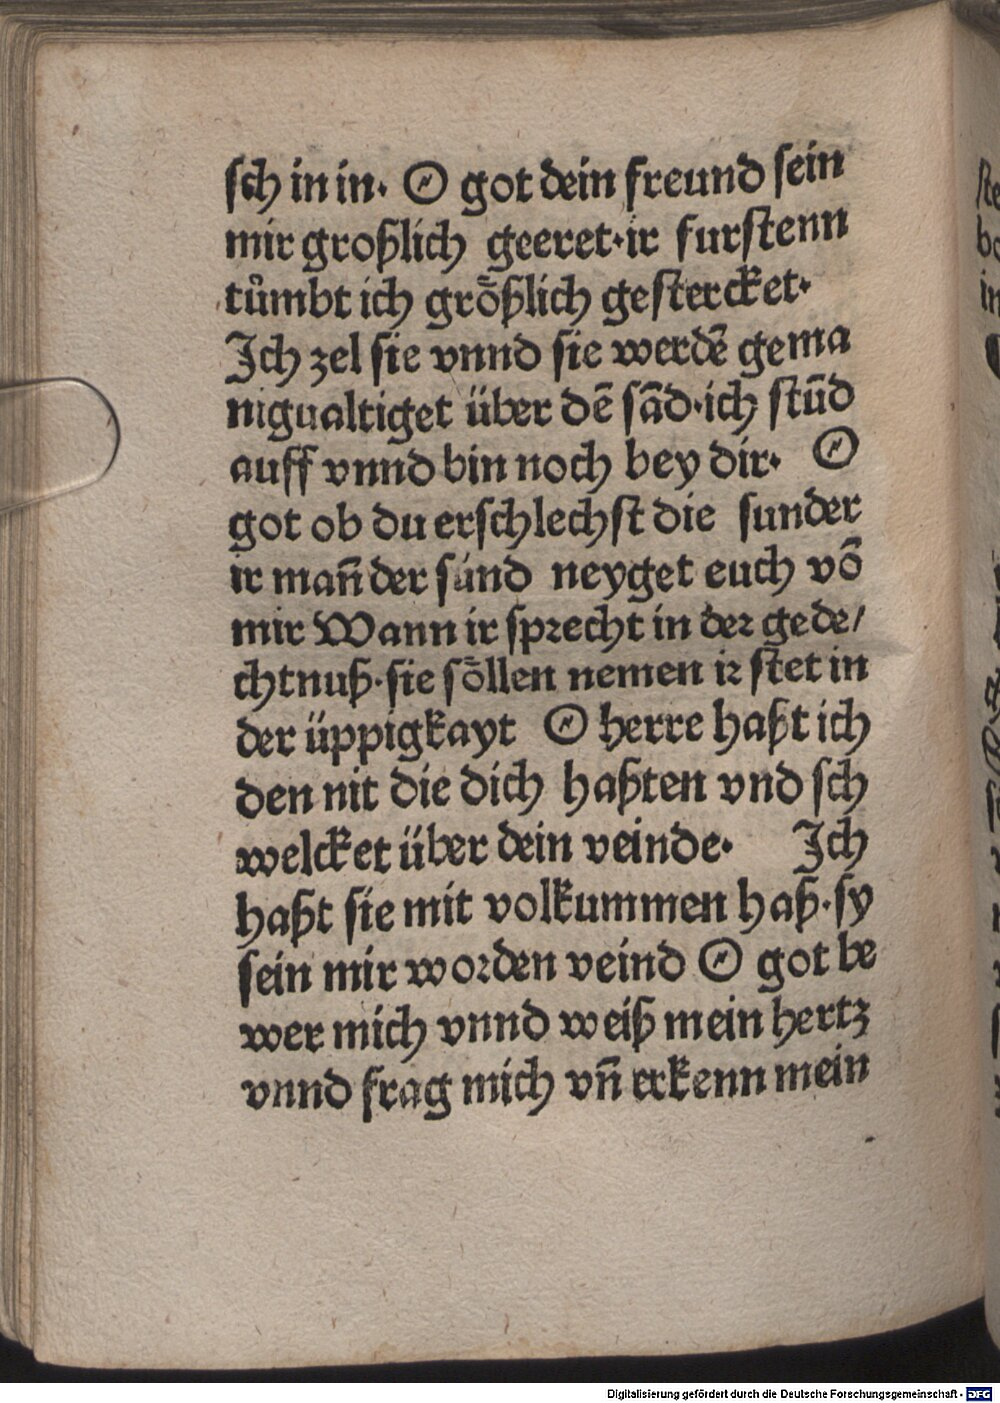 sch in in· O got dein freund sein
mir großlich geeret·ir furstenn
tůmbt ich grȫßlich gestercket·
Jch zel sie vnnd sie werdē gema
nigualtiget über dē sād·ich stūd
auff vnnd bin noch bey dir· O
got ob du erschlechst die sunder
ir man̄ der sünd neyget euch vō
mir Wann ir sprecht in der gede/
chtnuß·sie söllen nemen ir stet in
der üppigkayt O herre haßt ich
den nit die dich haßten vnd sch
welcket über dein veinde· Jch
haßt sie mit volkummen haß·sy
sein mir worden veind O got be
wer mich vnnd weiß mein hertz
vnnd frag mich vn̄ erkenn mein
Digitalisierung gefördert durch die Deutsche Forschungsgemeinschaft - DFG